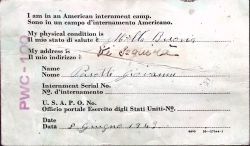 I am in an American internment camp.
Sono in un campo d'internamento Americano.
My physical condition is
Il mio stato di salute è Molto Buono
My address is
Il mio indirizzo è
Name
Nome Giovanni
Internment Serial No.
No. d'internamento
U. S. A. P. O. No.
Officio portale Esercito degli Stati Uniti-No.
Date
Data Giugno 1943
PWC-100